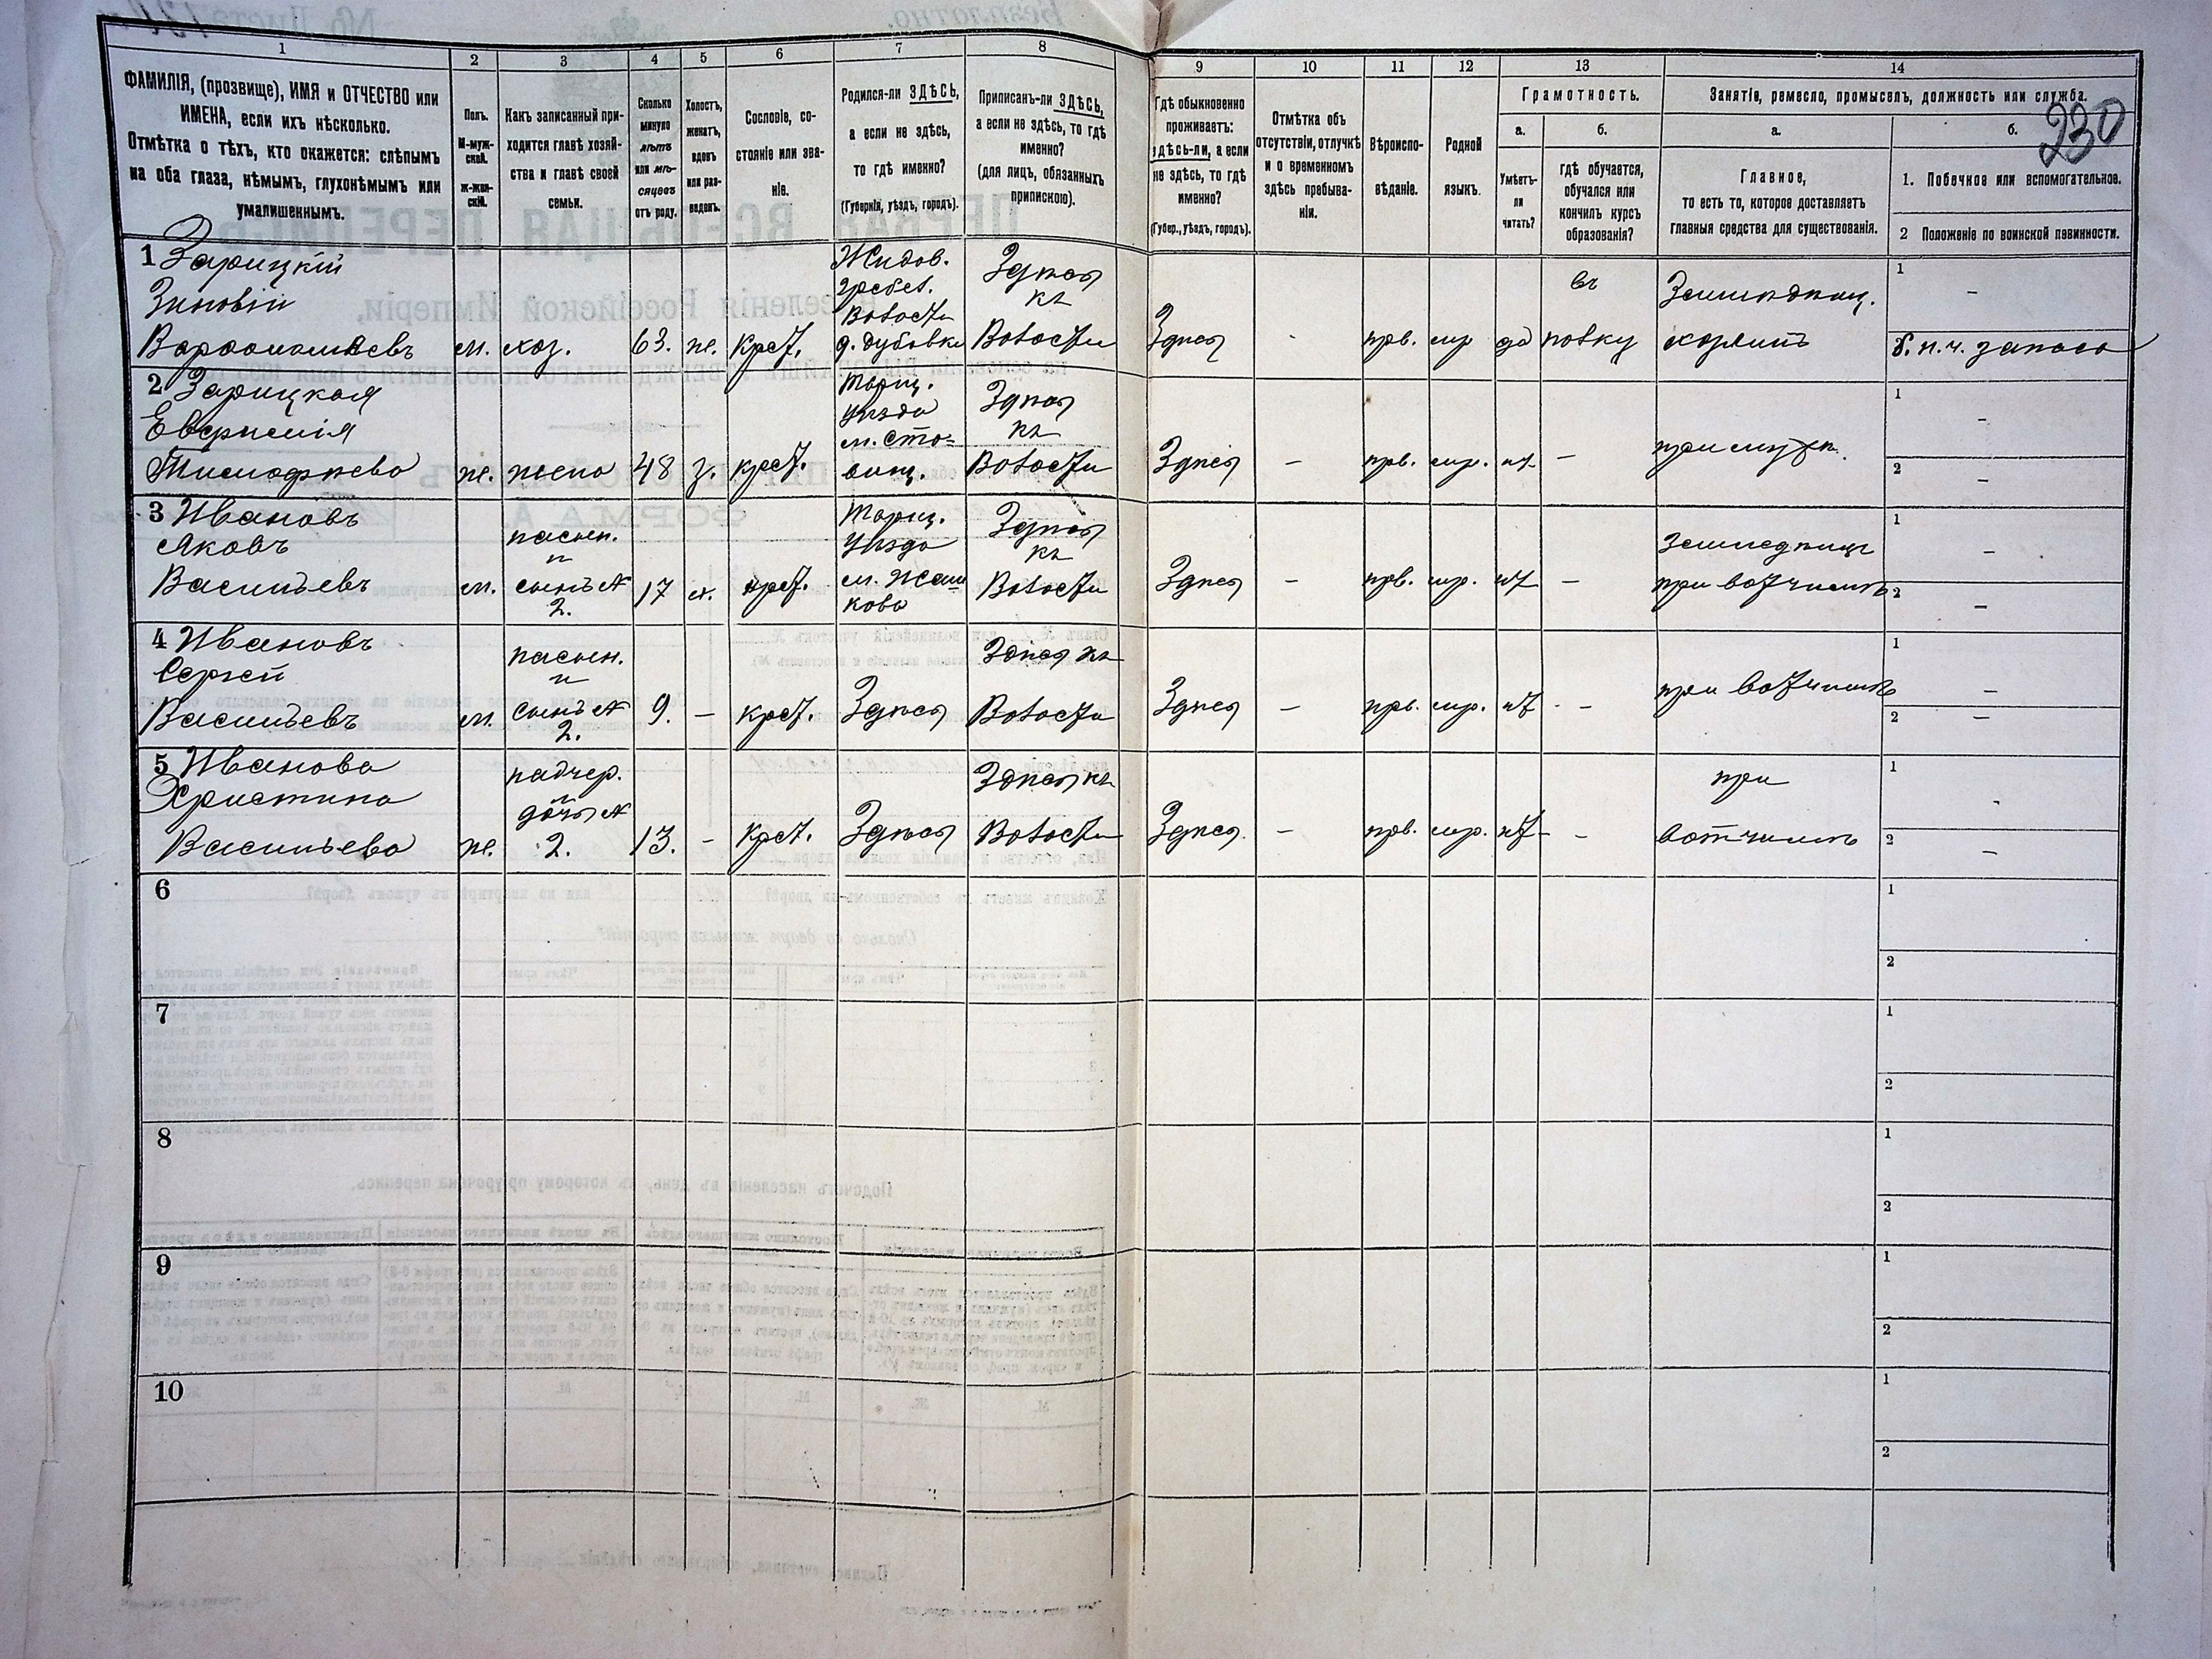 230
1 2 3 4 5 6 7 8 9 10 11 12 13 14
ФАМИЛІЯ, (прозвище), ИМЯ и ОТЧЕСТВО или
ИМЕНА, если ихъ нѣсколько.
Отмѣтка о тѣхъ, кто окажется: слѣпымъ
на оба глаза, нѣмымъ, глухонѣмымъ или
умалишеннымъ.
Полъ.
М-муж-
ской.
ж-жен-
скій.
Какъ записанный при-
ходится главѣ хозяй-
ства и главѣ своей
семьи.
Сколько
минуло
лѣтъ
или мѣ-
сяцевъ
отъ роду.
Холостъ,
женатъ,
вдовъ
или раз-
веденъ.
Сословіе, со-
стояніе или зва-
ніе.
Родился-ли ЗДѢСЬ,
а если не здѣсь,
то гдѣ именно?
(Губернія, уѣздъ, городъ).
Приписанъ-ли ЗДѢСЬ,
а если не здѣсь, то гдѣ
именно?
(для лицъ, обязанныхъ
припискою).
Гдѣ обыкновенно
проживаетъ:
здѣсь-ли, а если
не здѣсь, то гдѣ
именно?
(Губер., уѣздъ, городъ).
Отмѣтка объ
отсутствіи, отлучкѣ
и о временномъ
здѣсь пребыва-
ніи.
Вѣроиспо-
вѣданіе.
Родной
языкъ.
Грамотность.
а.
Умѣетъ-
ли
читать?
б.
гдѣ обучается,
обучался или
кончилъ курсъ
образованія?
Занятіе, ремесло, промыселъ, должность или служба.
а.
Главное,
то есть то, которое доставляетъ
главныя средства для существованія.
б.
1. Побочное или вспомогательное.
2 Положеніе по воинской повинности.
1 Зарицкій
Зиновій
Варфоломѣевъ
м.
хоз.
63.
ж.
крест.
Жидов.
гребел.
Волости
д. Дубовки
Здѣсь
къ
Волости
Здѣсь
-
прв.
мр
да
въ
полку
Земледѣлец.
1
-
б. н. ч. запаса
2 Зарицкая
Евфимія
Тимофѣева
ж.
жена
48
з.
крест.
Таращ.
уѣзда
м. Ста-
вищ.
Здѣсь
къ
Волости
Здѣсь
-
прв.
мр.
нт
-
при мужѣ.
1
-
2
-
3 Ивановъ
Яковъ
Васильевъ
м.
пасын.
и
сынъ №
2.
17
х.
крест.
Таращ.
уѣзда
м. Жаш
кова
Здѣсь
къ
Волости
Здѣсь
-
прв.
мр.
нт
-
земледѣлецъ
при вотчимѣ
1
-
2
-
4 Ивановъ
Сергѣй
Васильевъ
м.
пасын.
и
сынъ №
2.
9.
-
крест.
Здѣсь
Здѣсь къ
Волости
Здѣсь
-
прв.
мр.
нт
-
при вотчимѣ
1
-
2
-
5 Иванова
Христина
Васильева
ж.
падчер.
и
дочь №
2.
13.
-
крест.
Здѣсь
Здѣсь къ
Волости
Здѣсь
-
прв.
мр.
нт
-
при
вотчимѣ
1
-
2
-
6
1
2
7
1
2
8
1
2
9
1
2
10
1
2